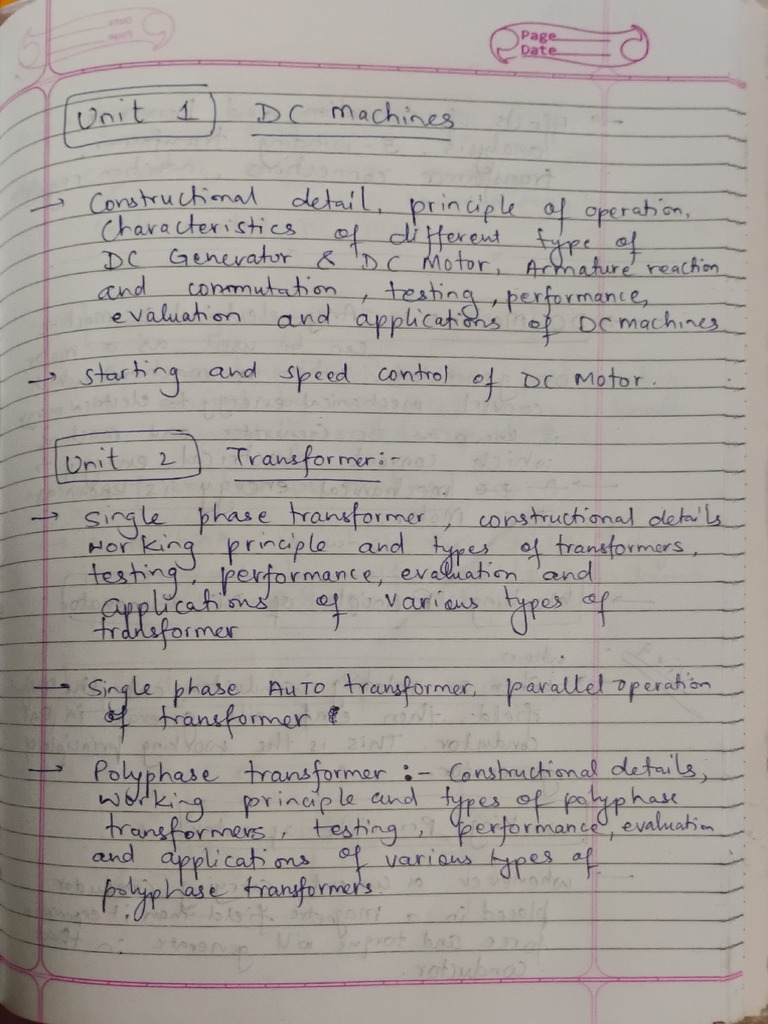 Page
Date
Unit 1 DC Machines
→ Constructional detail, principle of operation,
Characteristics of different type of
DC Generator & DC Motor, Armature reaction
and commutation, testing, performance,
evaluation and applications of DC machines
→ starting and speed control of DC Motor.
Unit 2 Transformer:-
→ Single phase transformer, constructional details
working principle and types of transformers,
testing, performance, evaluation and
applications of various types of
transformer
→ Single phase AUTO transformer, parallel operation
of transformer
→ Polyphase transformer :- Constructional details,
working principle and types of polyphase
transformers, testing, performance, evaluation
and applications of various types of
polyphase transformers.